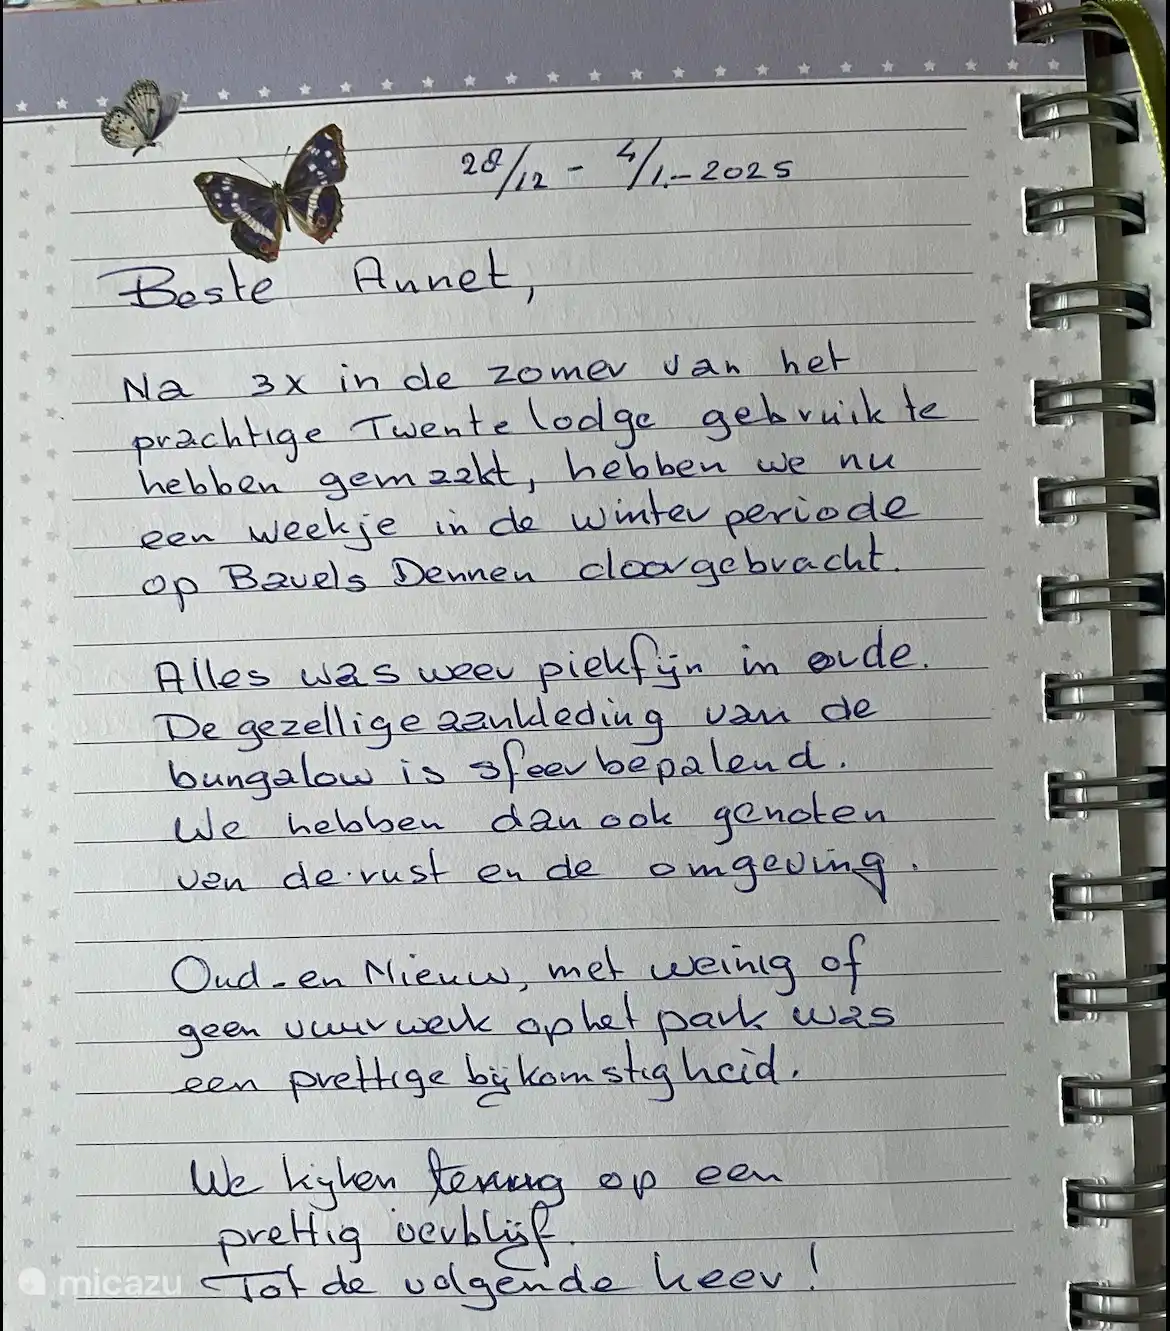 28/12 - 4/1.-2025
Beste Annet,
Na 3x in de zomer van het
prachtige Twente lodge gebruik te
hebben gemaakt, hebben we nu
een weekje in de winterperiode
op Bavels Dennen doorgebracht.
Alles was weer piekfijn in orde.
De gezellige aankleding van de
bungalow is sfeerbepalend.
We hebben dan ook genoten
van de rust en de omgeving.
Oud-en Nieuw, met weinig of
geen vuurwerk op het park was
een prettige bijkomstigheid.
We kijken terug op een
prettig verblijf.
Tot de volgende keer!
micazu